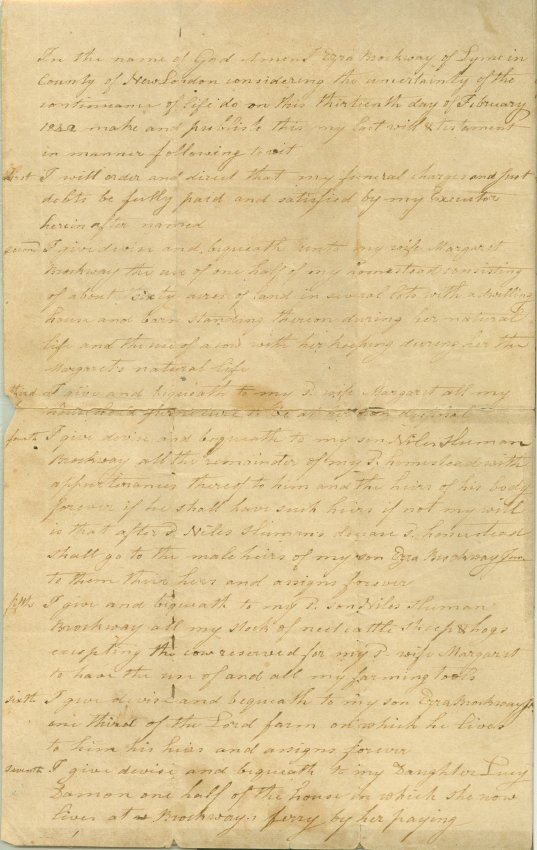 In the name of God Amen I Ezra Brockway of Lyme in
County of New London considering the uncertainty of the
continuance of life do on this thirteenth day of February
make and publish this my last will & testament
in manner following to wit
First I will order and direct that my funeral charges and just
debts be fully paid and satisfied by my Executor
herein after named
I give devise and bequeath unto my wife Margaret
Brockway the use of one half of my homestead consisting
of about Sixty acres of land in several lots with a dwelling
house and barn standing thereon during her natural
life and the use of a cow with her keeping during her the
Margaret's natural life
third I give and bequeath to my Sd wife Margaret all my
household furniture to be at her own disposal
I give devise and bequeath to my son Niles Sluman
Brockway all the remainder of my Sd homestead with
appurtenances thereof to him and the heirs of his body
forever if he shall have such heirs if not my will
is that after Sd Niles Slumans decease Sd homestead
shall go to the male heirs of my son Ezra Brockway Junr
to them their heirs and assigns forever
fifth I give and bequeath to my Sd son Niles Sluman
Brockway all my stock of neet cattle sheep & hogs
excepting the cow reserved for my Sd wife Margaret
to have the use of and all my farming tools
sixth I give devise and bequeath to my son Ezra Brockway Jr
one third of the Lord farm on which he lives
to him his heirs and assigns forever
seventh I give devise and bequeath to my Daughter Lucy
Damon one half of the house in which she now
lives at Brockways ferry by her paying